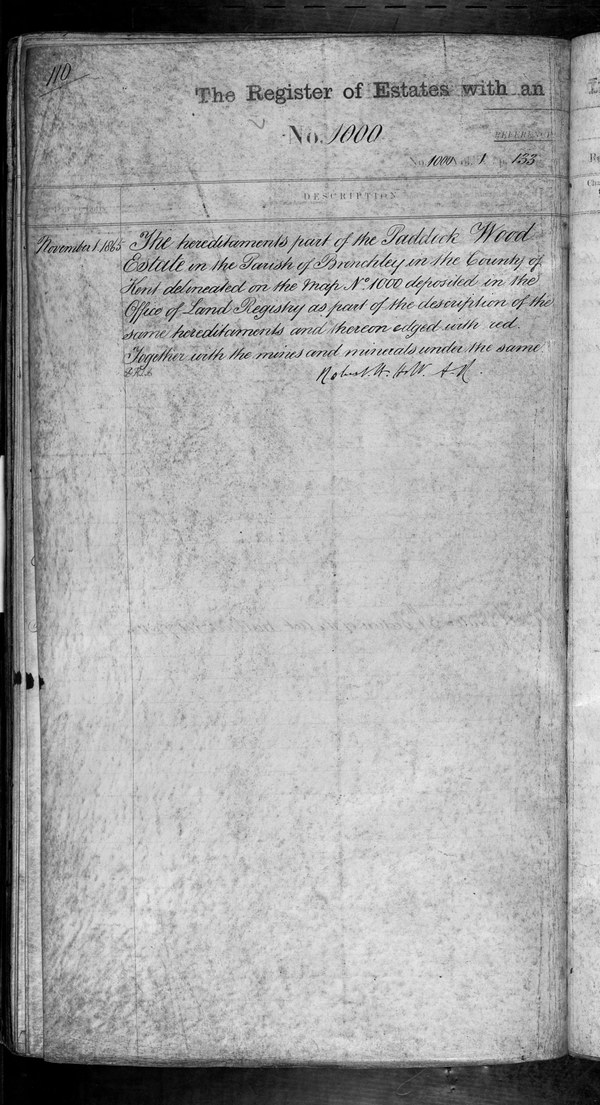 110
The Register of Estates with an
No. 1000
REFERENCE
No. 1000 Vol. 1 p. 133
DESCRIPTION
November 1 1865 The hereditaments part of the Paddock Wood
Estate in the Parish of Brenchley in the County of
Kent delineated on the Map No. 1000 deposited in the
Office of Land Registry as part of the description of the
same hereditaments and thereon edged with red.
Together with the mines and minerals under the same.
Robert H. Holt A.R.